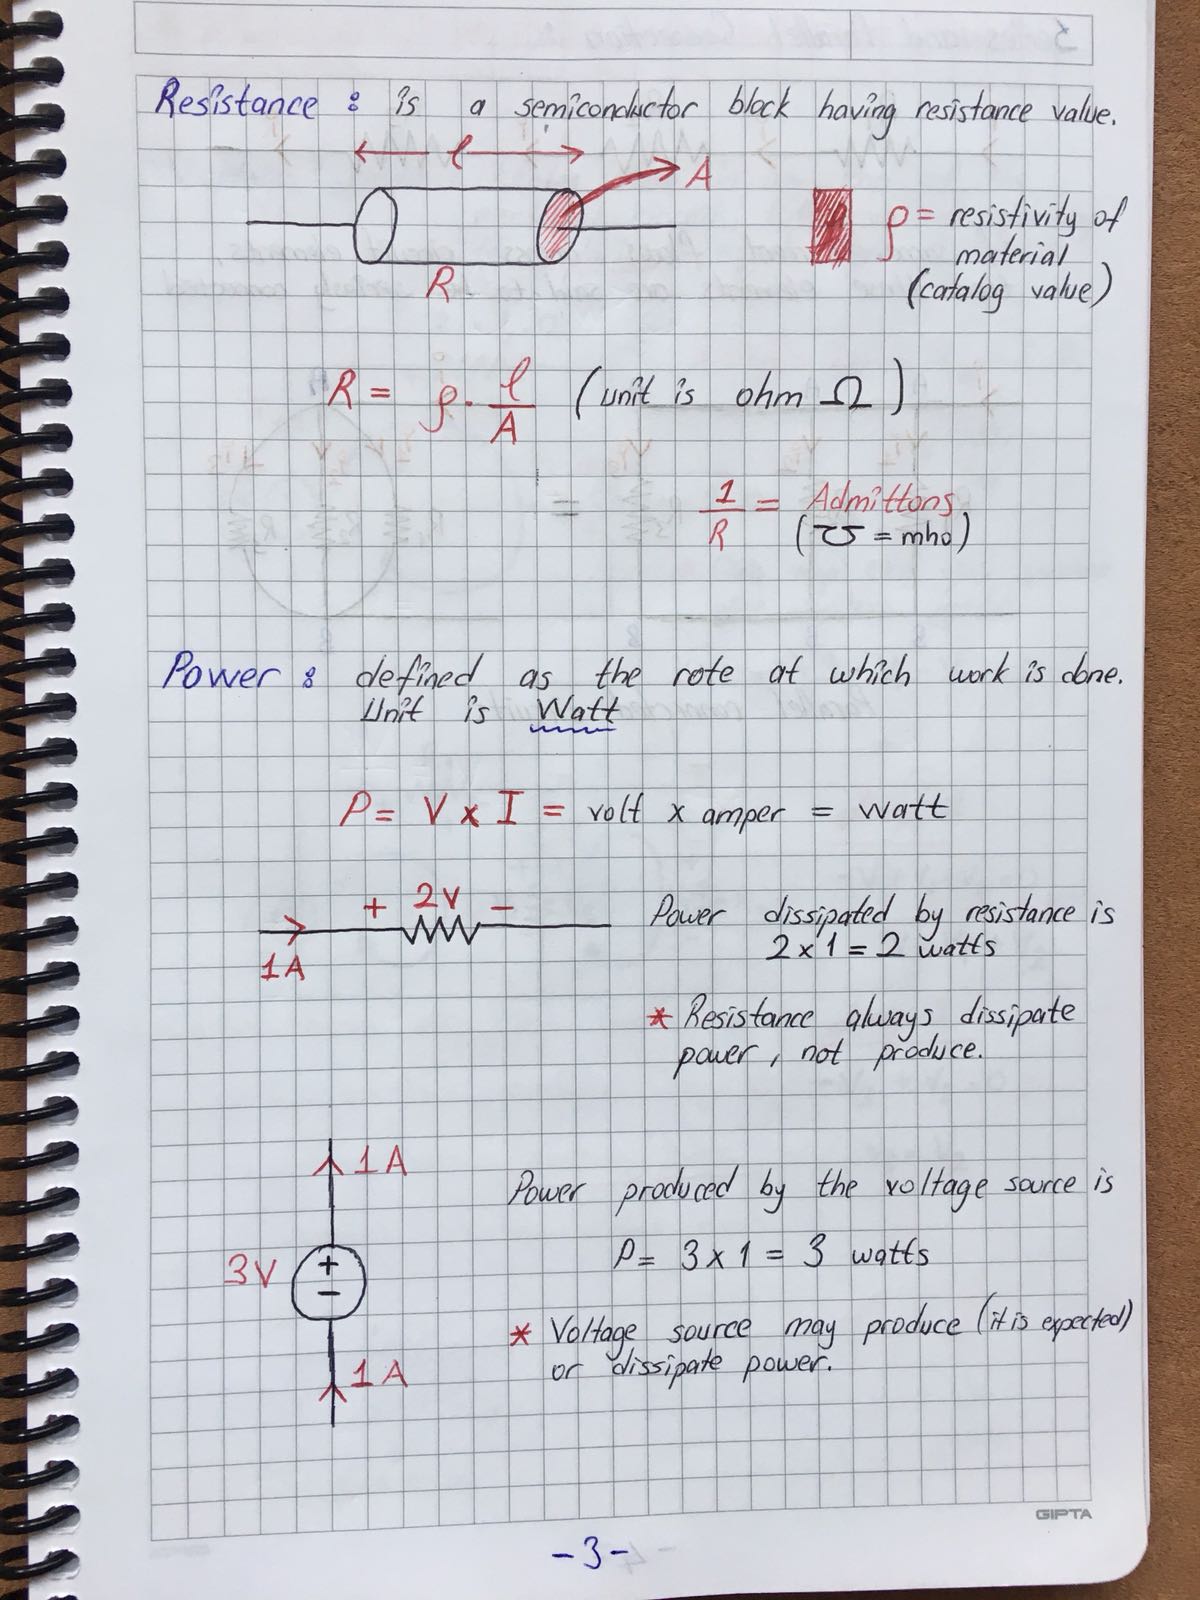 Resistance : is a semiconductor block having resistance value.
l
A
R
ρ = resistivity of
material
(catalog value)
R = ρ . l/A (unit is ohm Ω)
1/R = Admittons
(℧ = mho)
Power : defined as the rate at which work is done.
Unit is Watt
P = V x I = volt x amper = watt
+ 2V -
1A
Power dissipated by resistance is
2 x 1 = 2 watts
* Resistance always dissipate
power, not produce.
1A
3V
+
-
1A
Power produced by the voltage source is
P = 3 x 1 = 3 watts
* Voltage source may produce (it is expected)
or dissipate power.
GIPTA
-3-